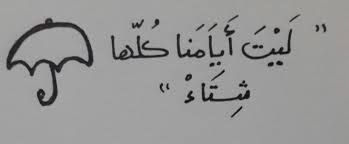 " لَيْتَ أَيَامَنا كُلّها
شِتَاءْ "